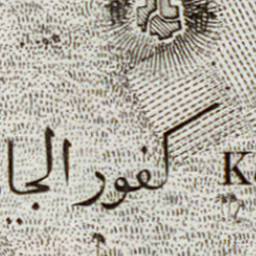 كفور الجا
K